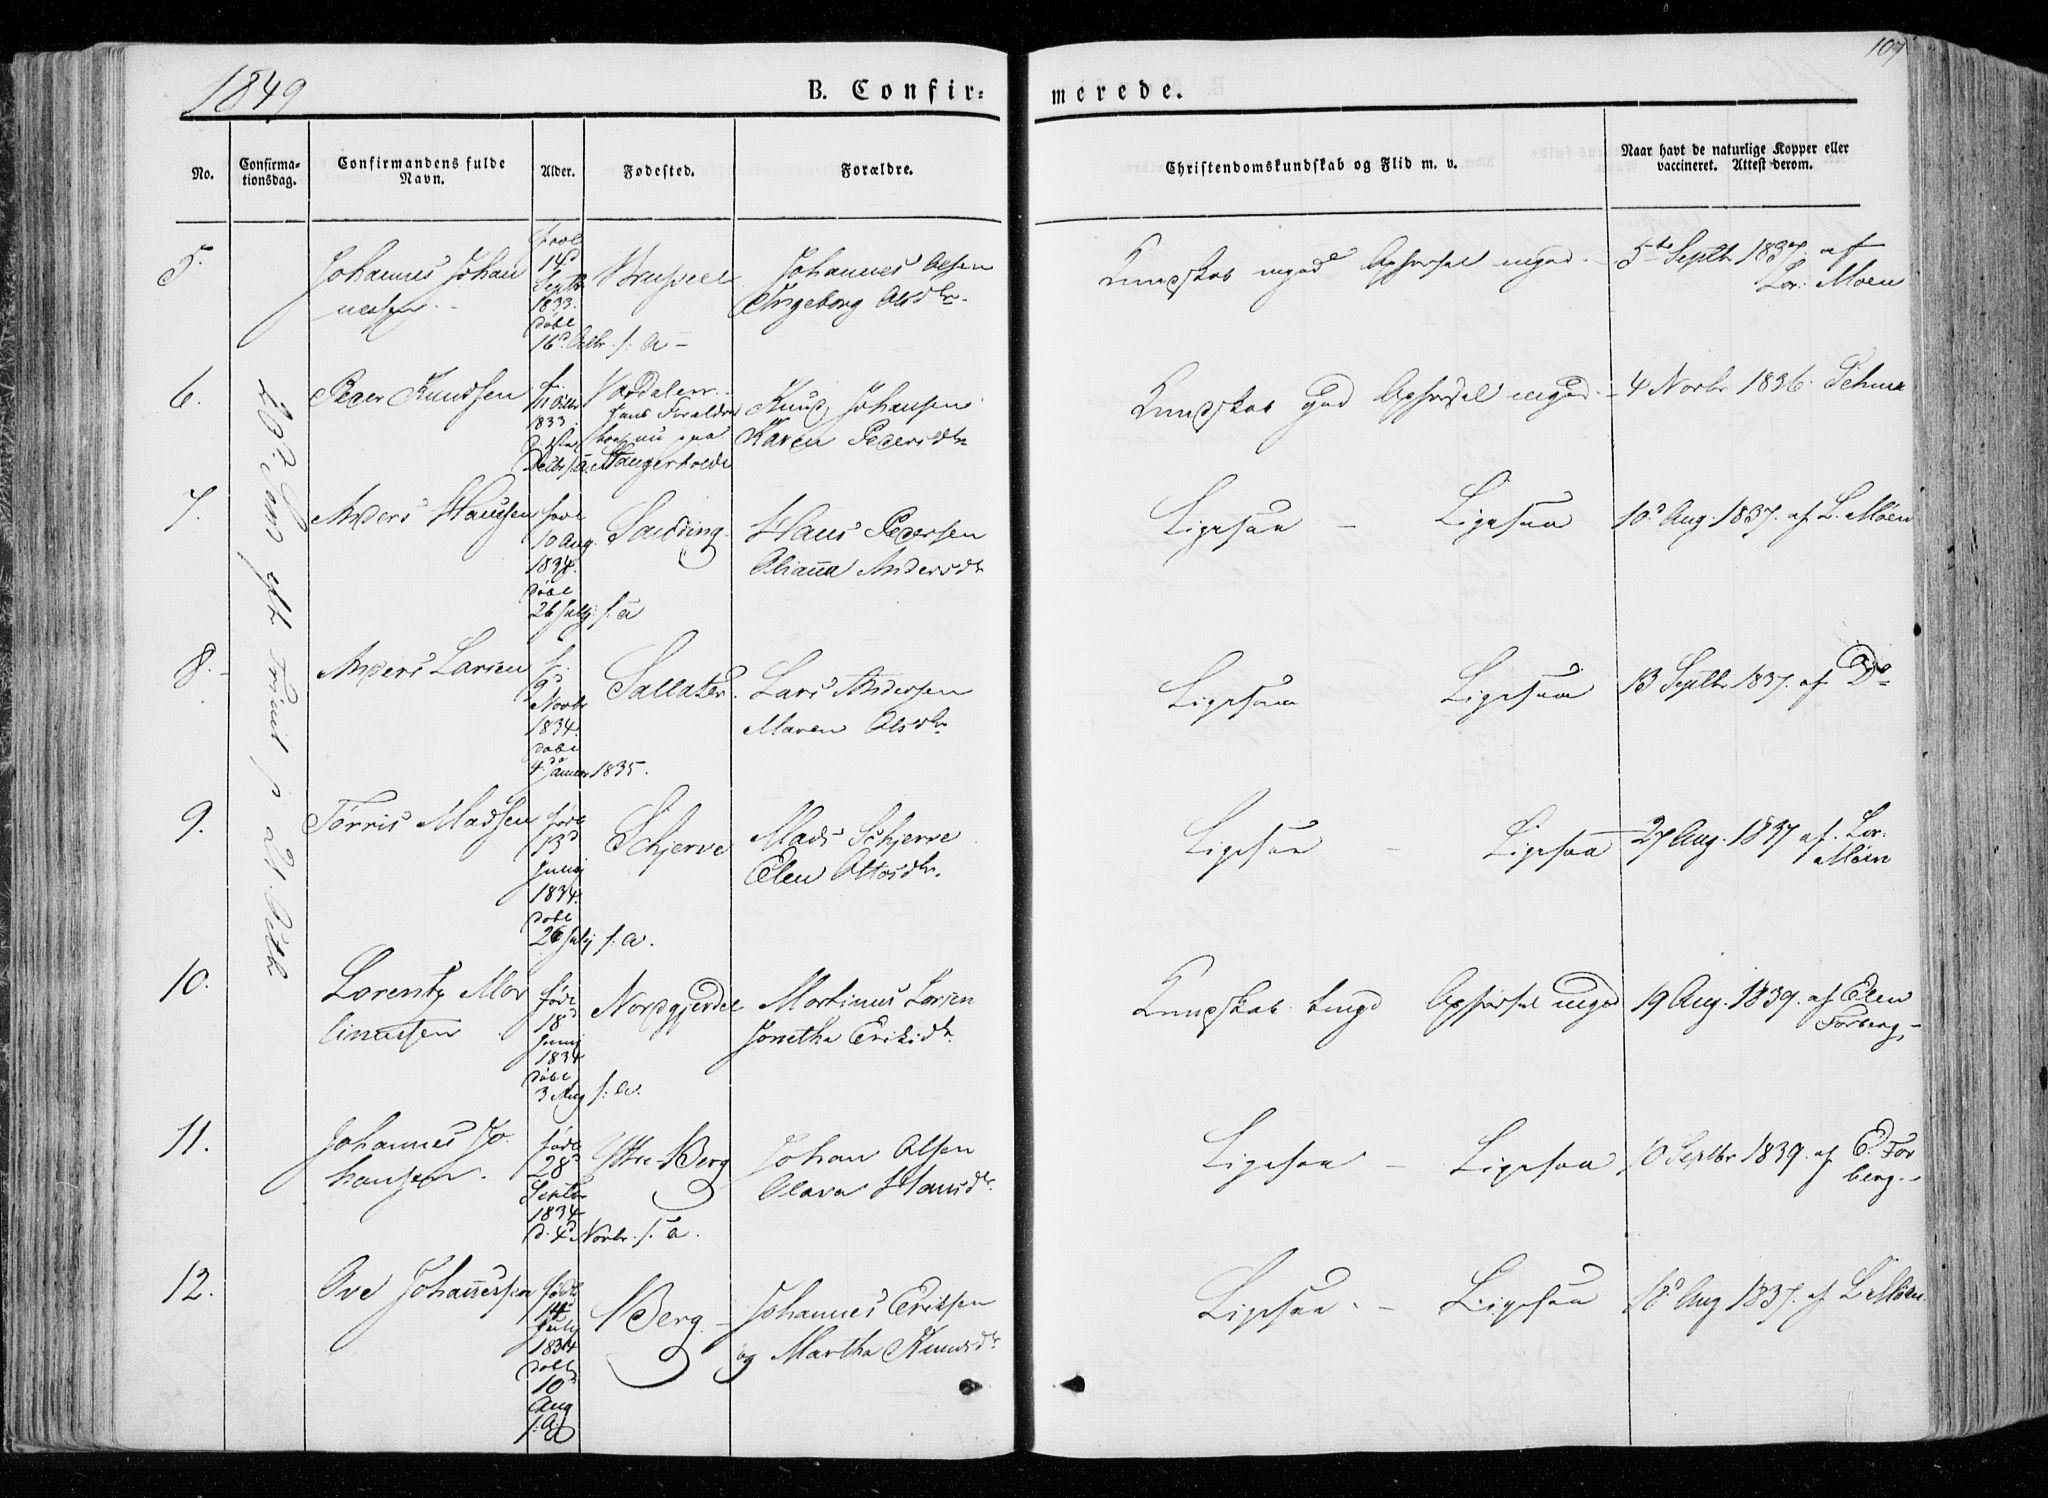 1849
B. Confir=
merede.
107
No.
Confirma-
tionsdag.
Confirmandens fulde
Navn.
Alder.
Fødested.
Forældre.
Christendomskundskab og Flid m. v.
Naar havt de naturlige Kopper eller
vaccineret. Attest derom.
20d Søn eft Trinit 21 Octb
5.
Johannes Johan
nesen
14d
Septbr
1833.
døbt
16d Octbr. s. a
Johannes Olsen
Ingeborg Olsdtr.
Kundskab mgod Opførsel mgod
5te Septbr 1837. af
Lor: Moen
6.
Peter Knudsen
f.
11 Octbr
1833.
Værdalen
hans Forældre
boe nu paa
Stangerholdt
Knud Johansen
Karen Pedersdtr
Kundskab god Opførsel mgod
4 Novbr 1836.
7.
Anders Hansen
10 Aug.
1834.
døbt
26 July s. a
Hans Pedersen
Oliana Andersdtr
Ligesaa – Ligesaa
10d Aug. 1837. af L. Moen
8.
Anders Larsen
f.
9d
Novbr
1834.
døbt
4de Januar 1835.
Lars Andersen
Maren Olsdtr.
Ligesaa Ligesaa
13 Septbr 1837. af Do
9.
Tørris Madsen
født
13d
Junij
1834.
døbt
26 July s. a.
Schjerve
Mads Schjerve
Elen Ottosdtr.
Ligesaa – Ligesaa
27 Aug. 1837 af. Lor:
Moen
10.
Lorentz Mar
tinussen
født
18d
Junij
1834
døbt
3 Aug s. a.
Nordgjerdet
Martinus Larsen
Jonetha Eriksdtr.
Kundskab tmgd Opførsel mgod
19 Aug. 1839. af Elen
Forberg
11.
Johannes Jo
hansen.
født
28d
Septbr
1834
d. 4d Novbr. s. a.
Ytre Berg
Johan Olsen
Olava Hansdtr.
Ligesaa – Ligesaa
10 Septbr 1839. af E. For
berg
12.
Ove Johannessen
født
14d
July
1834
døbt
10d
Aug
s. a.
Berg
Johannes Eriksen
og Martha Knudsdtr
Ligesaa – Ligesaa
18d Aug 1837. af L Moen.